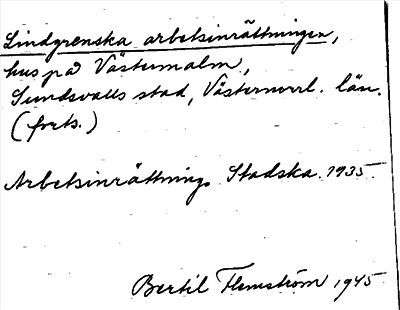 Lindgrenska arbetsinrättningen,
hus på Västermalm,
Sundsvalls stad, Västernorrl. län.
(forts.)
Arbetsinrättning. Stadska. 1935.
Bertil Flemström 1945